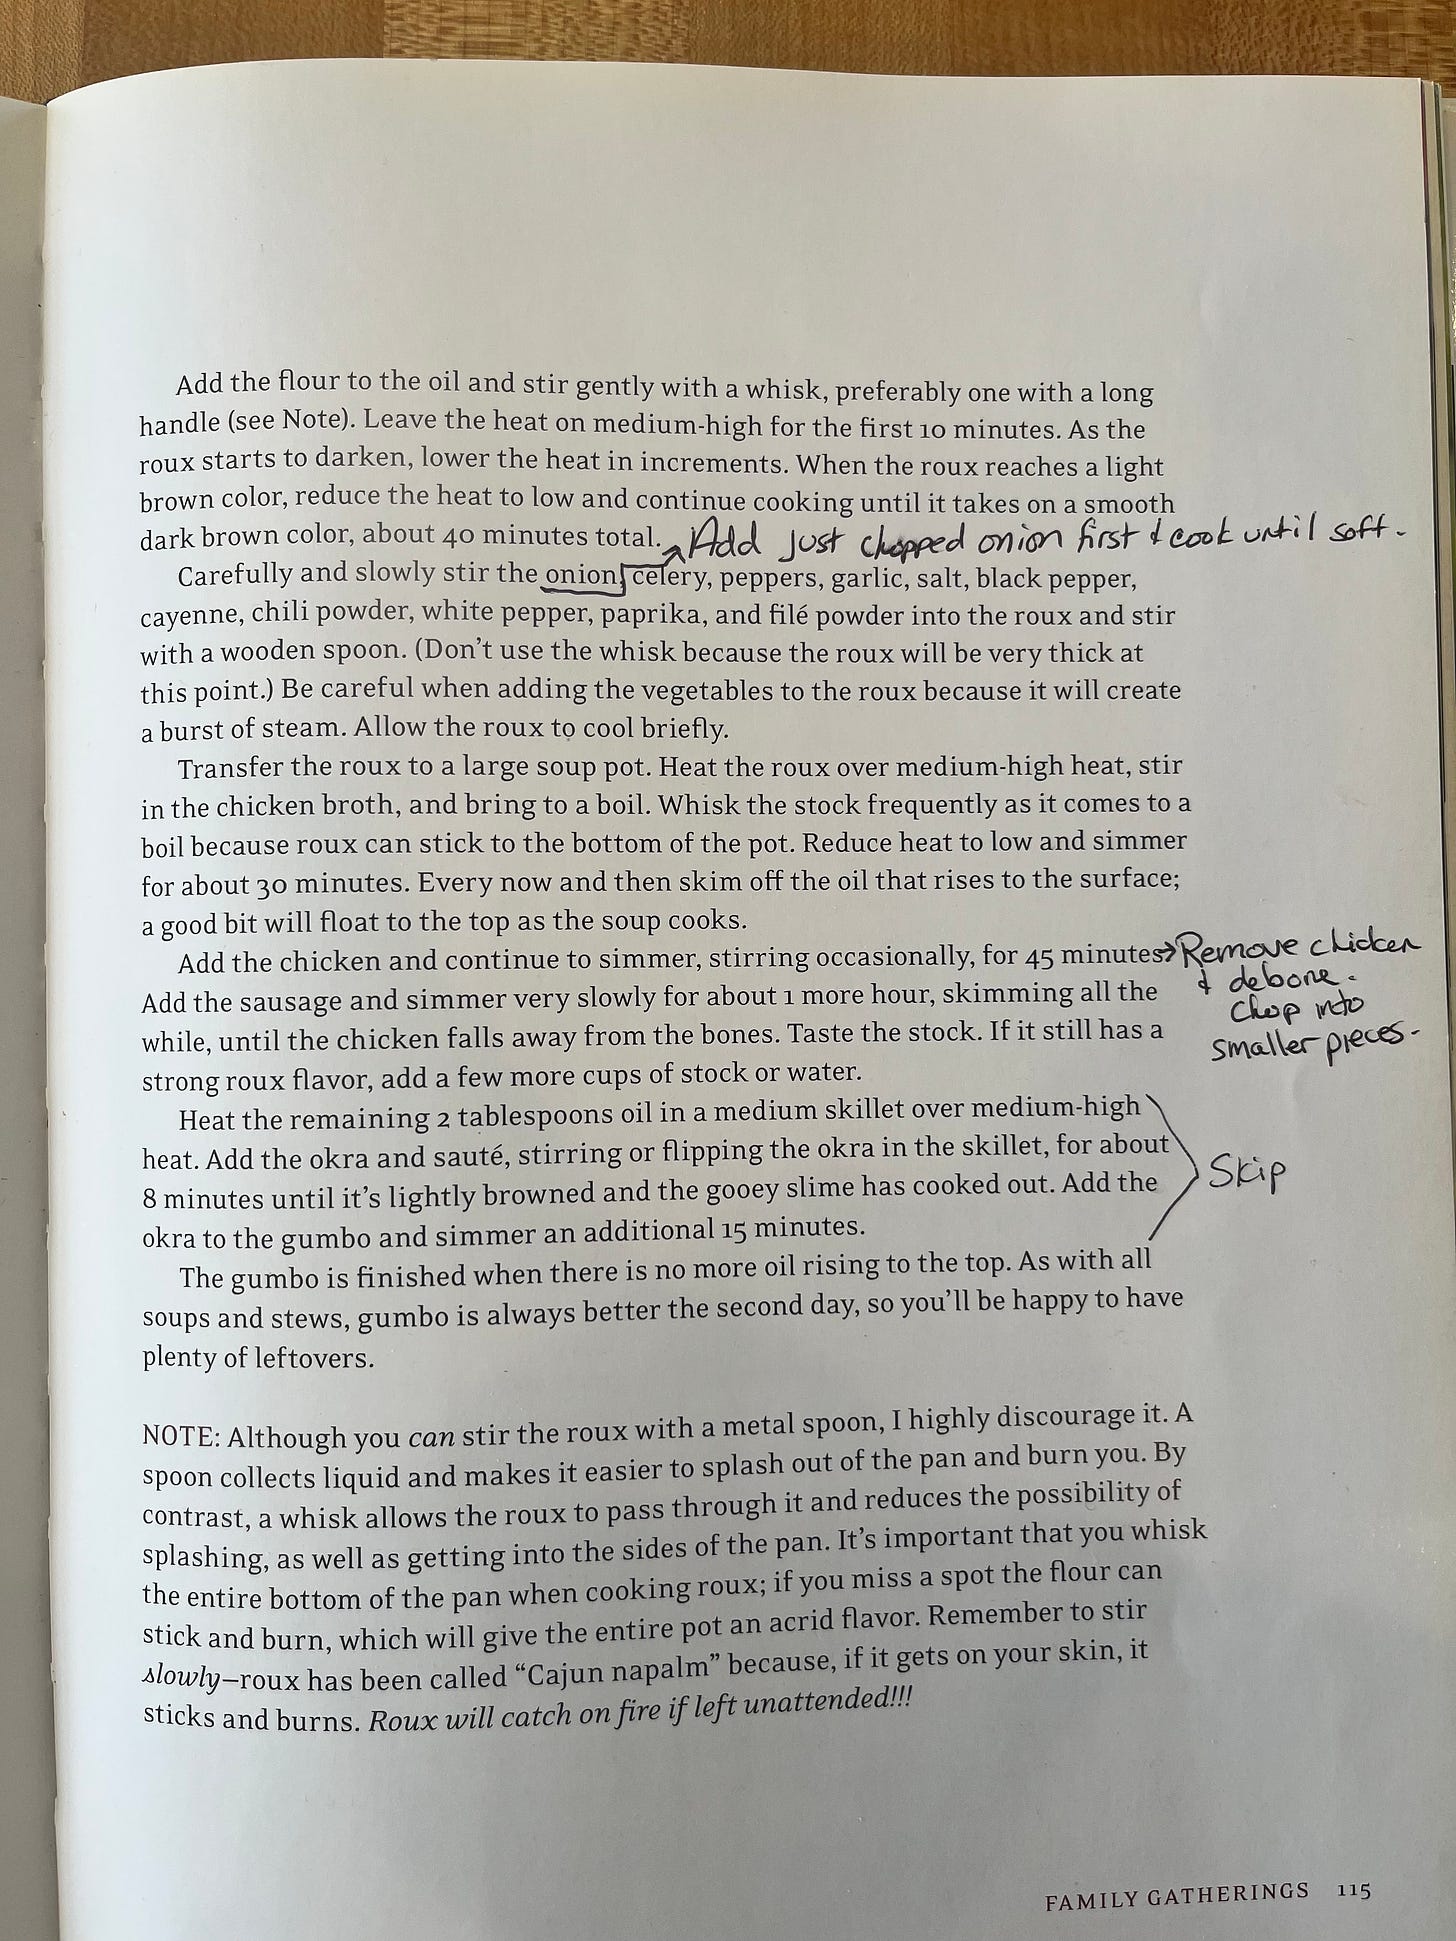 Add the flour to the oil and stir gently with a whisk, preferably one with a long
handle (see Note). Leave the heat on medium-high for the first 10 minutes. As the
roux starts to darken, lower the heat in increments. When the roux reaches a light
brown color, reduce the heat to low and continue cooking until it takes on a smooth
dark brown color, about 40 minutes total.
Add just chopped onion first & cook until soft.
Carefully and slowly stir the onion, celery, peppers, garlic, salt, black pepper,
cayenne, chili powder, white pepper, paprika, and filé powder into the roux and stir
with a wooden spoon. (Don't use the whisk because the roux will be very thick at
this point.) Be careful when adding the vegetables to the roux because it will create
a burst of steam. Allow the roux to cool briefly.
Transfer the roux to a large soup pot. Heat the roux over medium-high heat, stir
in the chicken broth, and bring to a boil. Whisk the stock frequently as it comes to a
boil because roux can stick to the bottom of the pot. Reduce heat to low and simmer
for about 30 minutes. Every now and then skim off the oil that rises to the surface;
a good bit will float to the top as the soup cooks.
Add the chicken and continue to simmer, stirring occasionally, for 45 minutes
→ Remove chicken
& debone.
Chop into
smaller pieces.
Add the sausage and simmer very slowly for about 1 more hour, skimming all the
while, until the chicken falls away from the bones. Taste the stock. If it still has a
strong roux flavor, add a few more cups of stock or water.
Heat the remaining 2 tablespoons oil in a medium skillet over medium-high
heat. Add the okra and sauté, stirring or flipping the okra in the skillet, for about
8 minutes until it's lightly browned and the gooey slime has cooked out. Add the
okra to the gumbo and simmer an additional 15 minutes.
Skip
The gumbo is finished when there is no more oil rising to the top. As with all
soups and stews, gumbo is always better the second day, so you'll be happy to have
plenty of leftovers.
NOTE: Although you can stir the roux with a metal spoon, I highly discourage it. A
spoon collects liquid and makes it easier to splash out of the pan and burn you. By
contrast, a whisk allows the roux to pass through it and reduces the possibility of
splashing, as well as getting into the sides of the pan. It's important that you whisk
the entire bottom of the pan when cooking roux; if you miss a spot the flour can
stick and burn, which will give the entire pot an acrid flavor. Remember to stir
slowly—roux has been called "Cajun napalm" because, if it gets on your skin, it
sticks and burns. Roux will catch on fire if left unattended!!!
FAMILY GATHERINGS 115